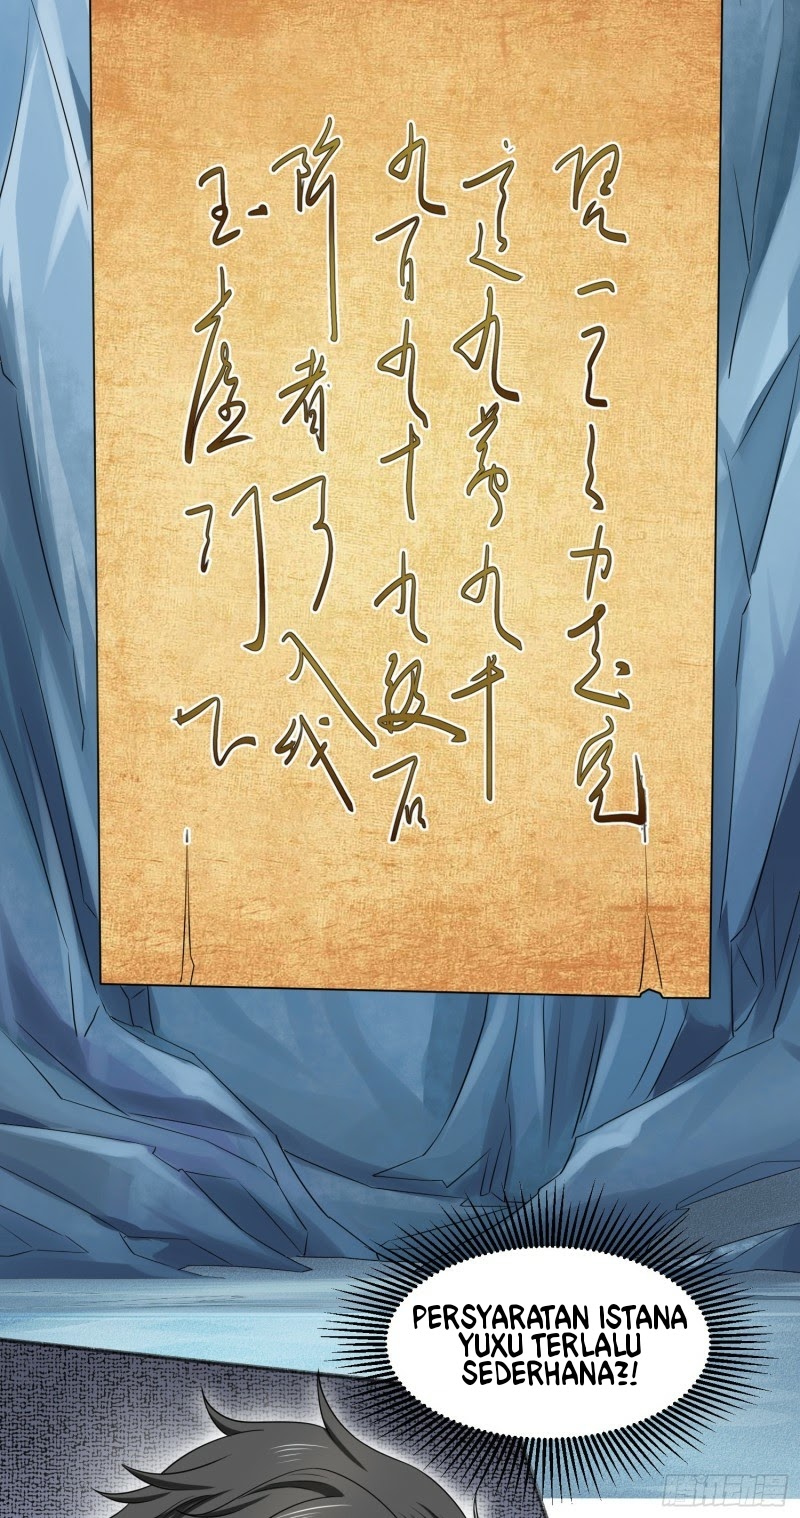 凭一己之力走完
这九万九千
九百九十九级石
阶者可入我
玉虚门下
PERSYARATAN ISTANA
YUXU TERLALU
SEDERHANA?!
腾讯动漫